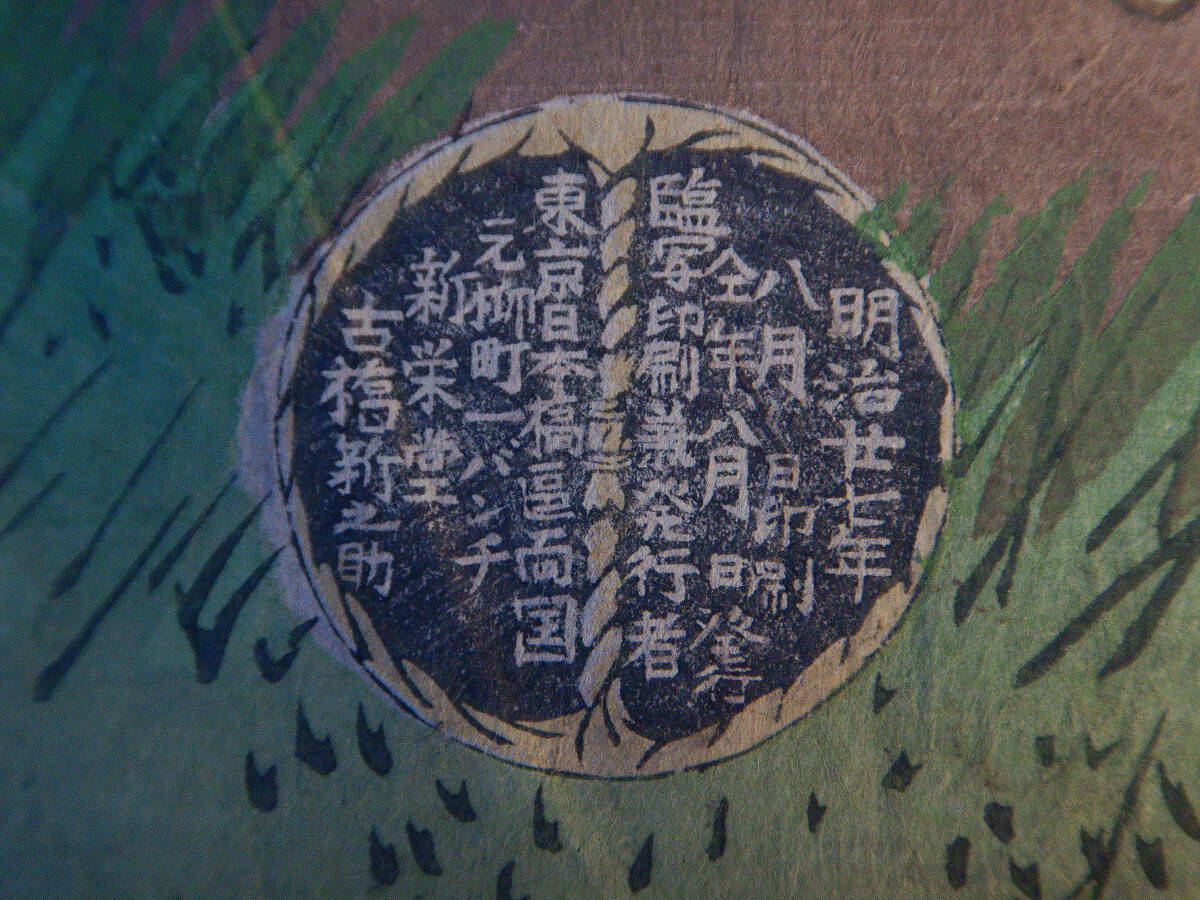 明治廿七年
八月 日印刷
仝年八月 日発行
臨写印刷兼発行者
東京日本橋區両国
元柳町一バンチ
新栄堂
古橋新之助